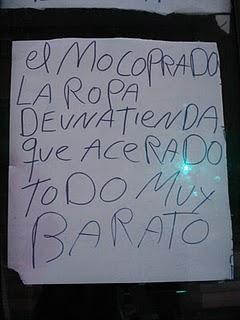 el MOCOPRADO
LA ROPA
DEUNATIENDA
que ACERADO
TODO MUY
BARATO